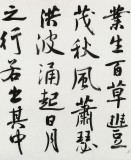 叢生百草豐
茂秋風蕭瑟
洪波涌起日月
之行若出其中